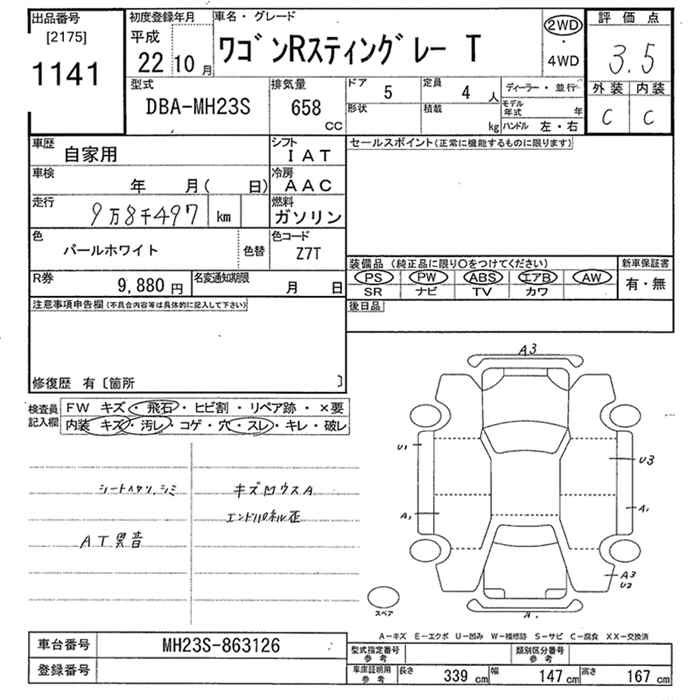 出品番号 初度登録年月 車名・グレード 評価点
[2175] 平成 ワゴンRスティングレー T 2WD
1141 22 10 月 ・ 3.5
4WD
型式 排気量 ドア 5 定員 4 人 ディーラー・並行 外装 内装
DBA-MH23S 658 形状 積載 モデル年式 年 C C
CC kg ハンドル 左・右
車歴 自家用 シフト IAT セールスポイント(正常に機能するものに限ります)
車検 年 月( 日) 冷房 AAC
走行 9万8千497 km 燃料 ガソリン
色 パールホワイト 色替 色コード Z7T
装備品 (純正品に限り○をつけてください) 新車保証書
R券 9,880 円 名変通知期限 月 日 PS PW ABS エアB AW 有・無
SR ナビ TV カワ
注意事項申告欄(不具合内容等は具体的に記入して下さい) 後日品
修復歴 有〔箇所 〕
検査員 FW キズ・飛石・ヒビ割・リペア跡・×要
記入欄 内装 キズ・汚レ・コゲ・穴・スレ・キレ・破レ
A3
U1 U3
シミ キズ凹ウスA
A1 A1
AT異音
A3
U2
スペア
A-キズ E-エクボ U-凹み W-補修跡 S-サビ C-腐食 XX-交換済
車台番号 MH23S-863126 型式指定番号 参考 類別区分番号 参考
登録番号 車庫証明用 参考 長さ 339 cm 幅 147 cm 高さ 167 cm